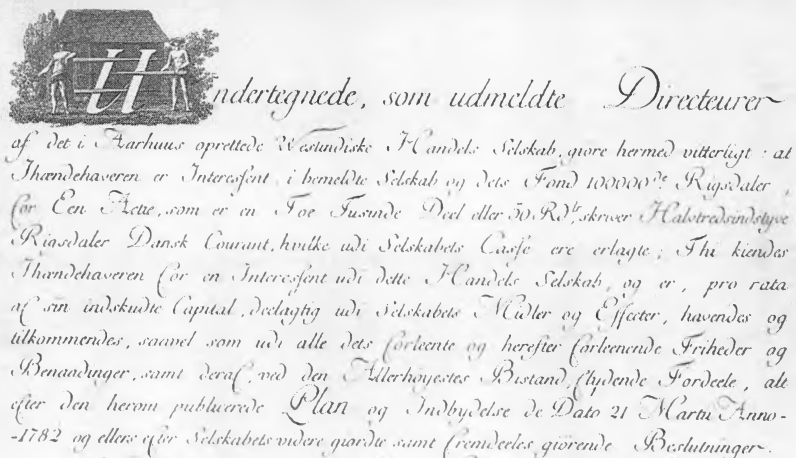 Undertegnede, som udmeldte Directeurer
af det i Aarhuus oprettede Westindiske Handels Selskab, giøre hermed vitterligt: at
Ihændehaveren er Interessent i bemeldte Selskab og dets Fond 100000de Rigsdaler,
for Een Actie, som er en Toe Tusinde Deel eller 50 Rdlr, skriver Halvtredsindstyve
Rigsdaler Dansk Courant, hvilke udi Selskabets Casse ere erlagte; Thi kiendes
Ihændehaveren for en Interessent udi dette Handels Selskab, og er, pro rata
af sin indskudte Capital, deelagtig udi Selskabets Midler og Effecter, havendes og
tilkommendes, saavel som udi alle dets forleente og herefter forleenende Friheder og
Benaadinger, samt deraf, ved den Allerhøyestes Bistand, flydende Fordeele, alt
efter den herom publicerede Plan og Indbydelse de Dato 21 Martii Anno-
-1782 og ellers efter Selskabets videre giordte samt fremdeeles giørende Beslutninger.